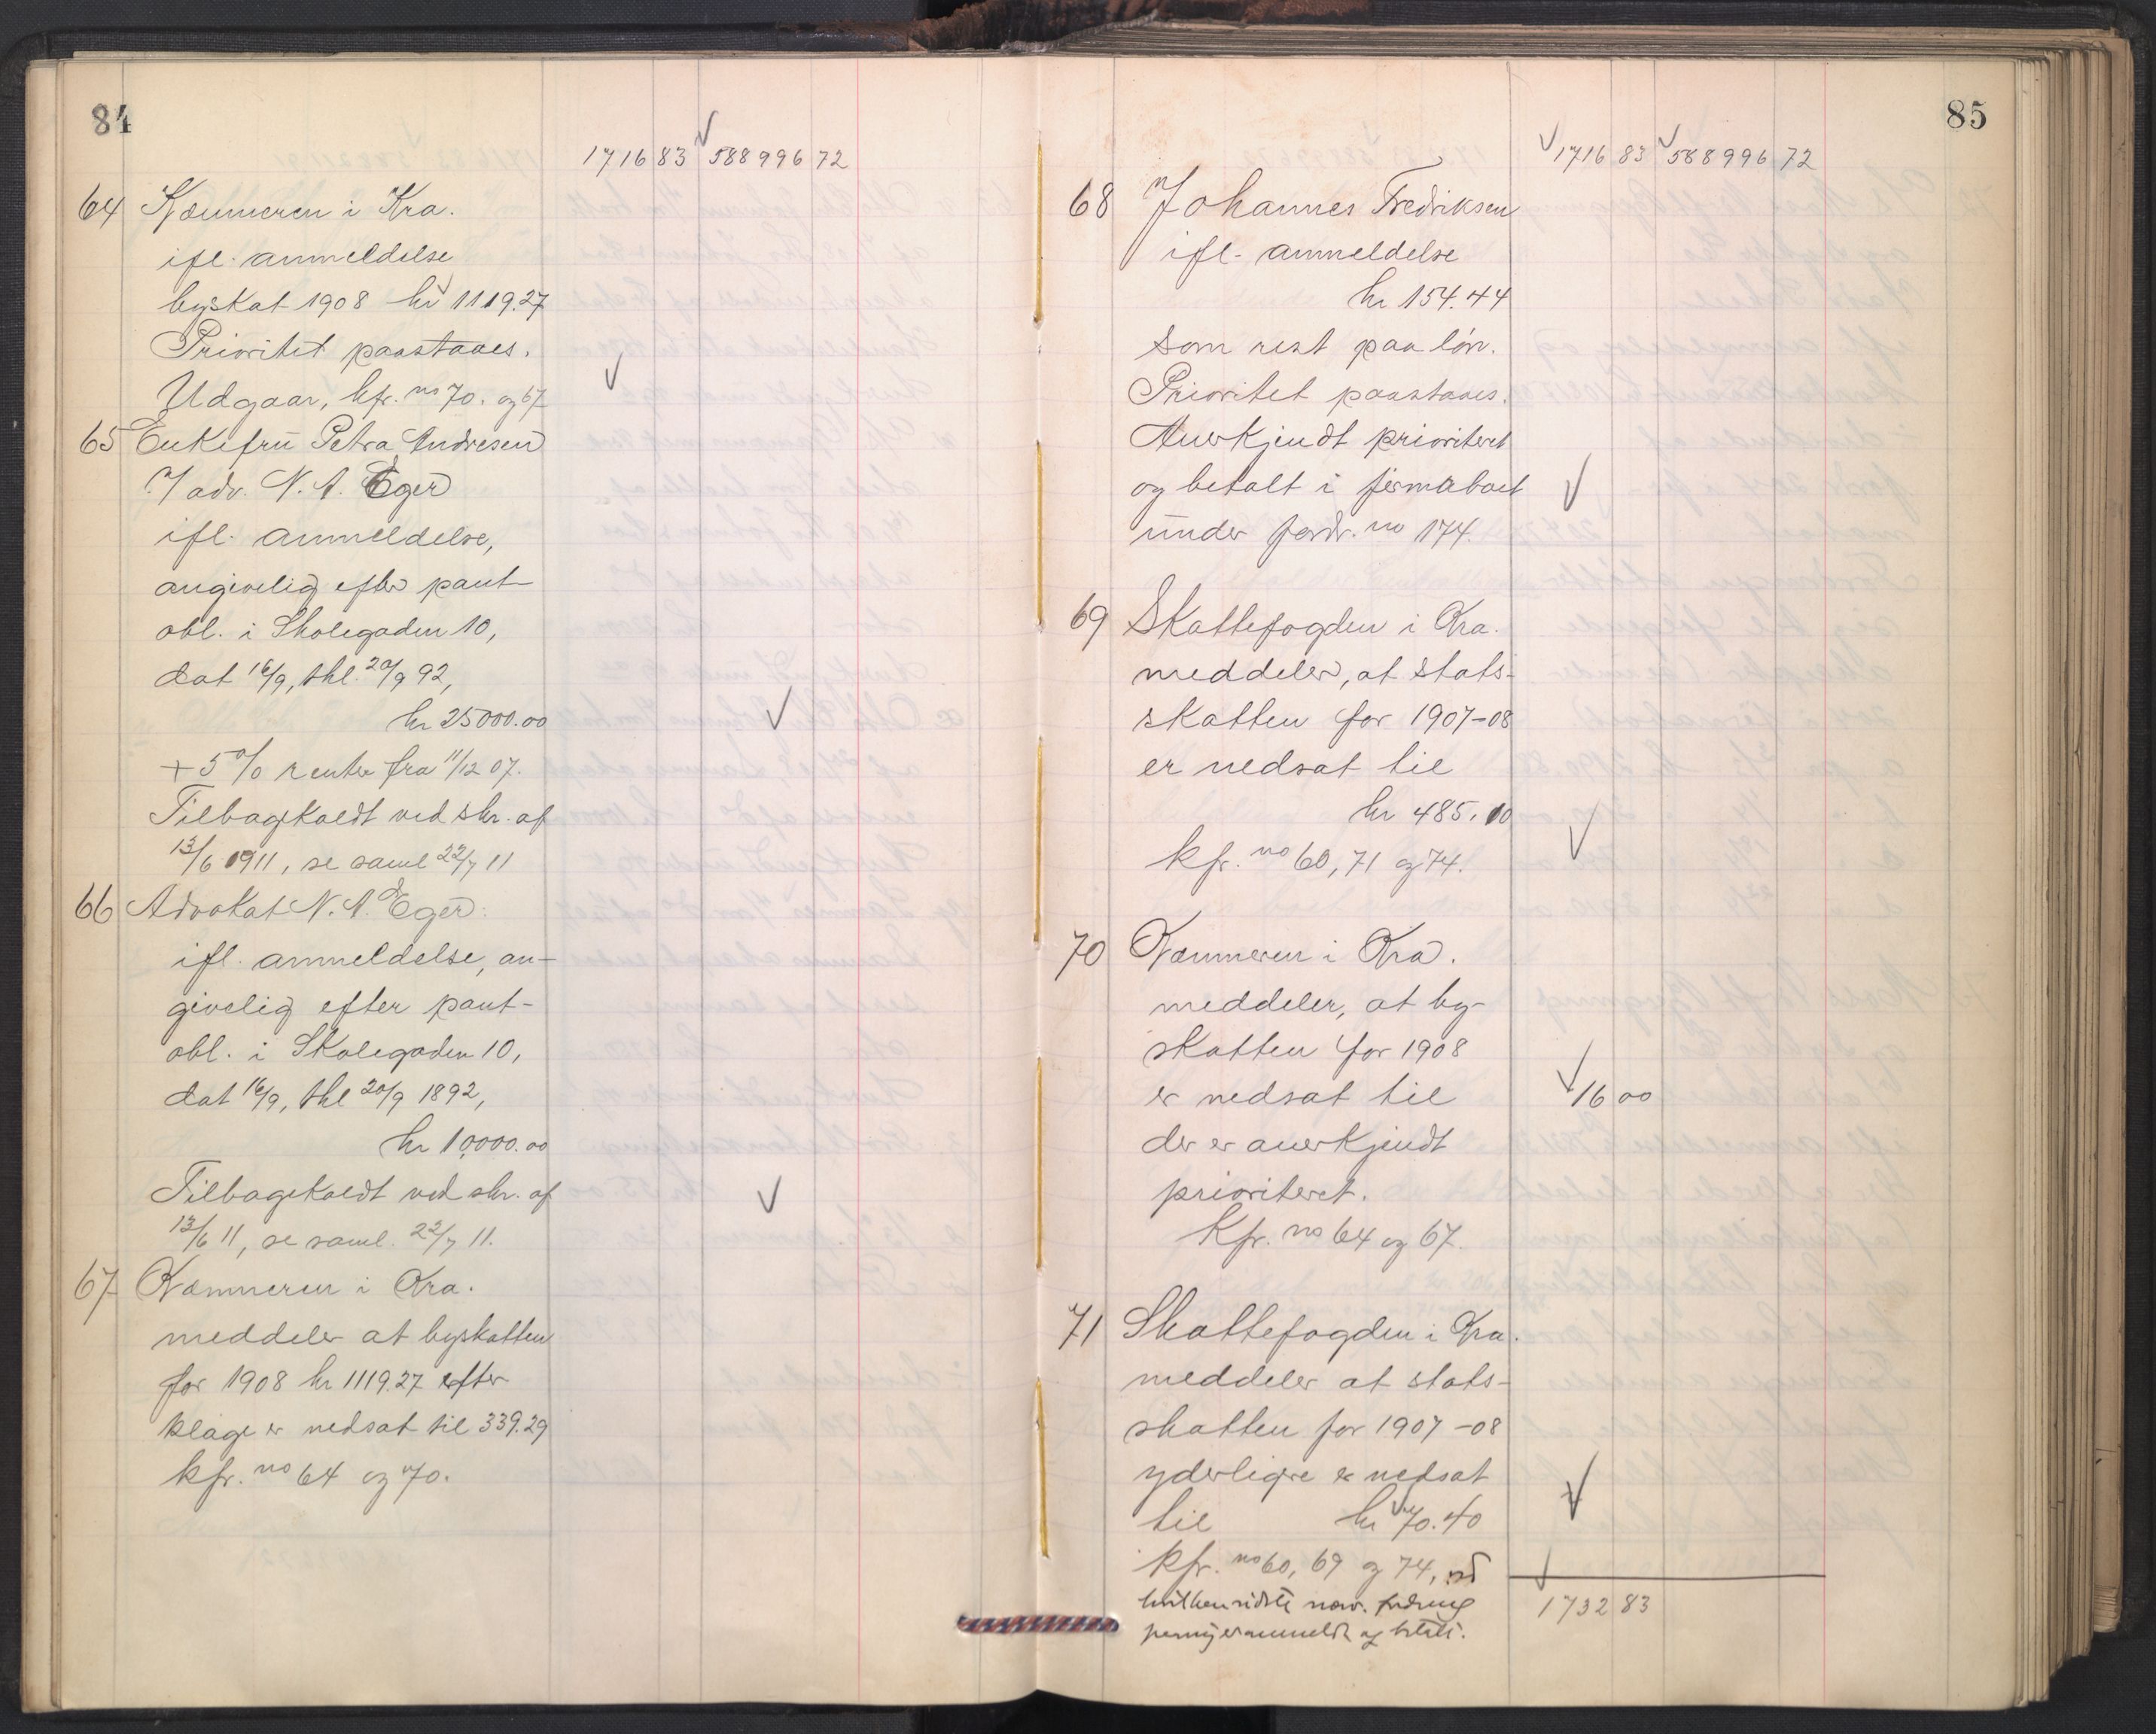 84
1716 83 588996 72
64 Kæmneren i Kra.
ifl. anmeldelse
byskat 1908 kr 1119.27
Prioritet paastaaes.
Udgaar, kfr. no 70. og 67
65 Enkefru Petra Andresen
v/ adv. N. A. Eger
ifl. anmeldelse,
angivelig efter pant-
obl. i Skolegaden 10,
dat 16/9, thl. 20/9 92,
kr 25000.00
+ 5% renter fra 11/12 07.
Tilbagekaldt ved skr. af
13/6 1911, se saml 22/7 11
66 Advokat N. A. Eger.
ifl. anmeldelse, an-
givelig efter pant-
obl. i Skolegaden 10,
dat 16/9, thl 20/9 1892,
kr 10000.00
Tilbagekaldt ved skr. af
13/6 11, se saml. 22/7 11.
67 Kæmneren i Kra.
meddeler at byskatten
for 1908 kr 1119.27 efter
klage er nedsat til 339.29
kfr. no 64 og 70.
85
1716 83 588996 72
68 Johannes Fredriksen
ifl. anmeldelse
kr 154.44
som rest paa løn.
Prioritet paastaaes.
Anerkjendt prioriteret
og betalt i firmaboet
under fordr. no 174.
69 Skattefogden i Kra.
meddeler, at stats-
skatten for 1907-08
er nedsat til
kr 485.10
kfr. no 60, 71 og 74.
70 Kæmneren i Kra.
meddeler, at by-
skatten for 1908
er nedsat til 16 00
der er anerkjendt
prioriteret.
Kfr. no 64 og 67.
71 Skattefogden i Kra.
meddeler at stats-
skatten for 1907-08
yderligre er nedsat
til kr 70.40
kfr. no 60, 69 og 74,
1732 83